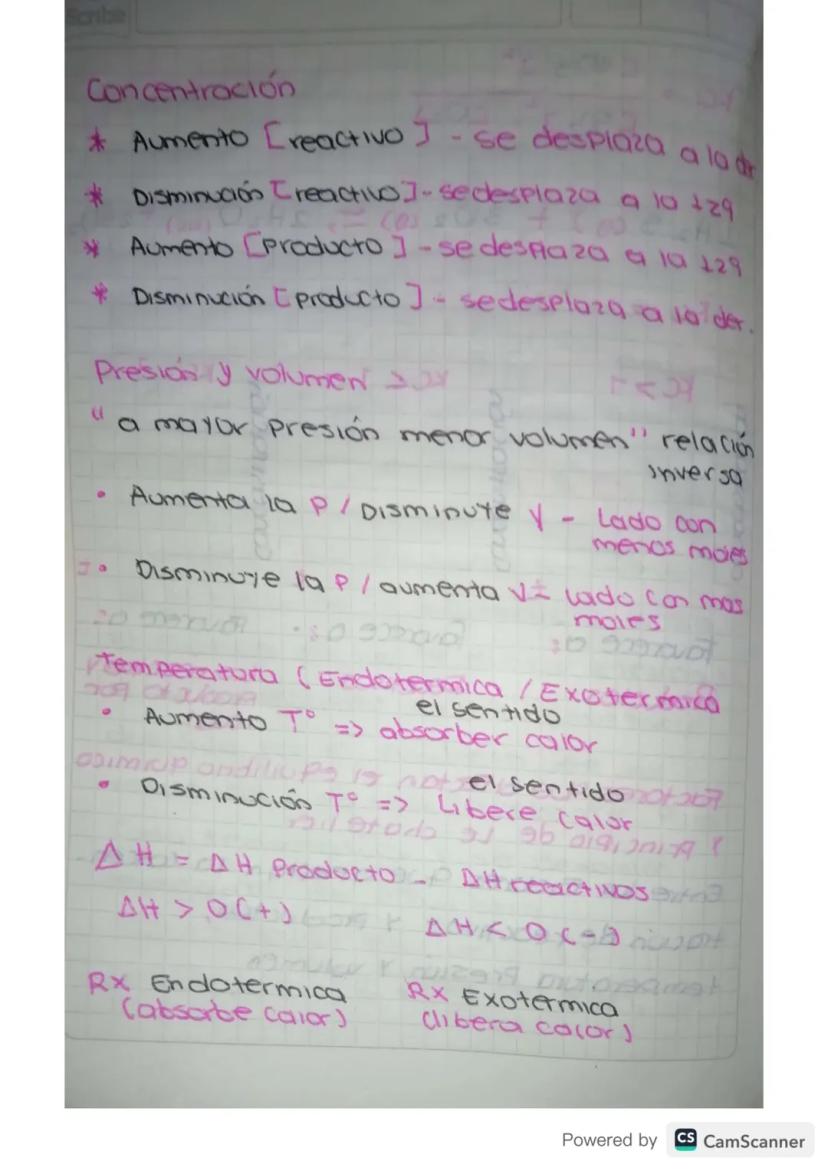 Scribe
Concentración
* Aumento [reactivo] - se desplaza a la der
* Disminución [reactivo] - se desplaza a la izq
* Aumento [producto] - se desplaza a la izq
* Disminución [producto] - se desplaza a la der.
Presión y volumen
"a mayor presión menor volumen" relación
inversa
• Aumenta la P / Disminuye V - Lado con
menos moles
• Disminuye la P / aumenta V = Lado con mas
moles
Temperatura (Endotermica / Exotermica
el sentido
• Aumento T° => absorber calor
el sentido
• Disminución T° => Libere calor
Δ H = Δ H Producto - Δ H reactivos
ΔH > 0 (+)
ΔH < 0 (-)
RX Endotermica
(absorbe calor)
RX Exotermica
(libera calor)
Powered by CS CamScanner